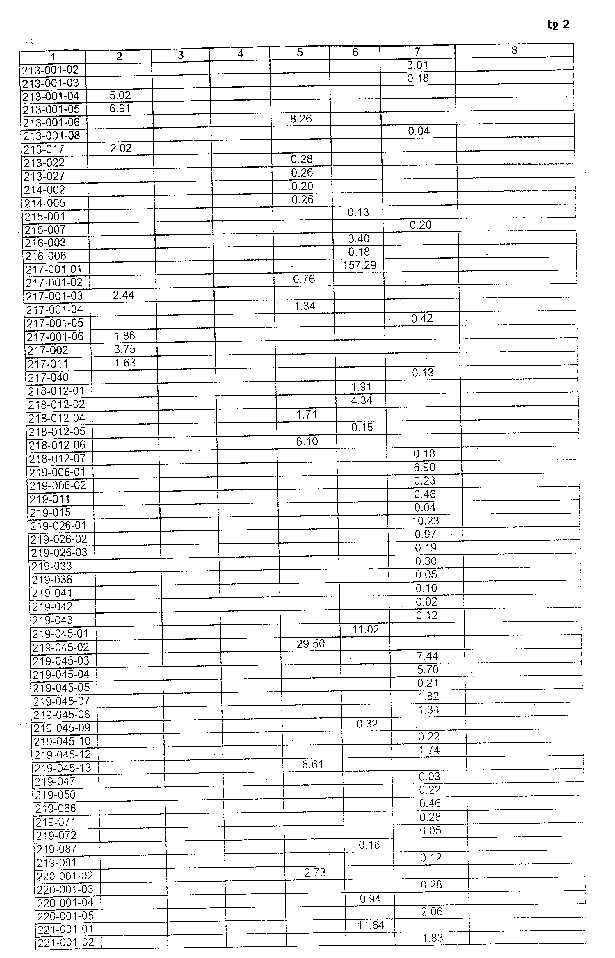 tg 2
1 2 3 4 5 6 7 8
213-001-02 3.01
213-001-03 0.18
213-001-04 5.02
213-001-05 6.91
213-001-06 8.26
213-001-08 0.04
213-017 2.02
213-022 0.28
213-027 0.26
214-002 0.20
214-005 0.26
215-001 0.13
216-007 0.20
216-003 3.40
216-006 0.18
217-001-01 157.29
217-001-02 0.76
217-001-03 2.44
217-001-04 1.34
217-001-05 0.42
217-001-06 1.86
217-002 3.75
217-011 1.63
217-040 0.13
218-012-01 1.91
218-012-02 4.34
218-012-04 1.71
218-012-05 0.15
218-012-06 6.10
218-012-07 0.18
219-006-01 6.90
219-006-02 0.23
219-011 0.48
219-015 0.04
219-026-01 10.23
219-026-02 0.07
219-026-03 0.19
219-033 0.30
219-036 0.05
219-041 0.10
219-042 0.02
219-043 0.12
219-045-01 11.02
219-045-02 29.50
219-045-03 7.44
219-045-04 5.70
219-045-05 0.21
219-045-07 1.82
219-045-08 1.34
219-045-09 0.32
219-045-10 0.22
219-045-12 1.74
219-045-13 8.61
219-047 0.03
219-050 0.22
219-066 0.46
219-071 0.28
219-072 0.05
219-087 0.16
219-091 0.12
220-001-02 2.73
220-001-03 0.28
220-001-04 0.94
220-001-05 2.06
221-001-01 11.64
221-001-02 1.83